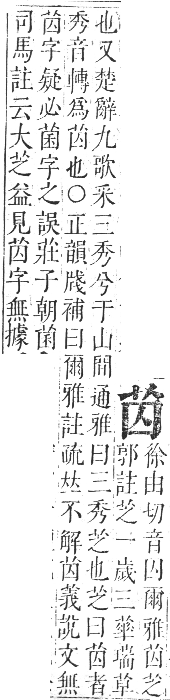 苬
徐由切音囚爾雅苬芝
郭註芝一歲三華瑞草
也又楚辭九歌采三秀兮于山間通雅曰三秀芝也芝曰苬者
秀音轉爲苬也○正韻牋補曰爾雅註疏𠀤不解苬義說文無
苬字疑必菌字之誤莊子朝菌
司馬註云大芝益見苬字無據